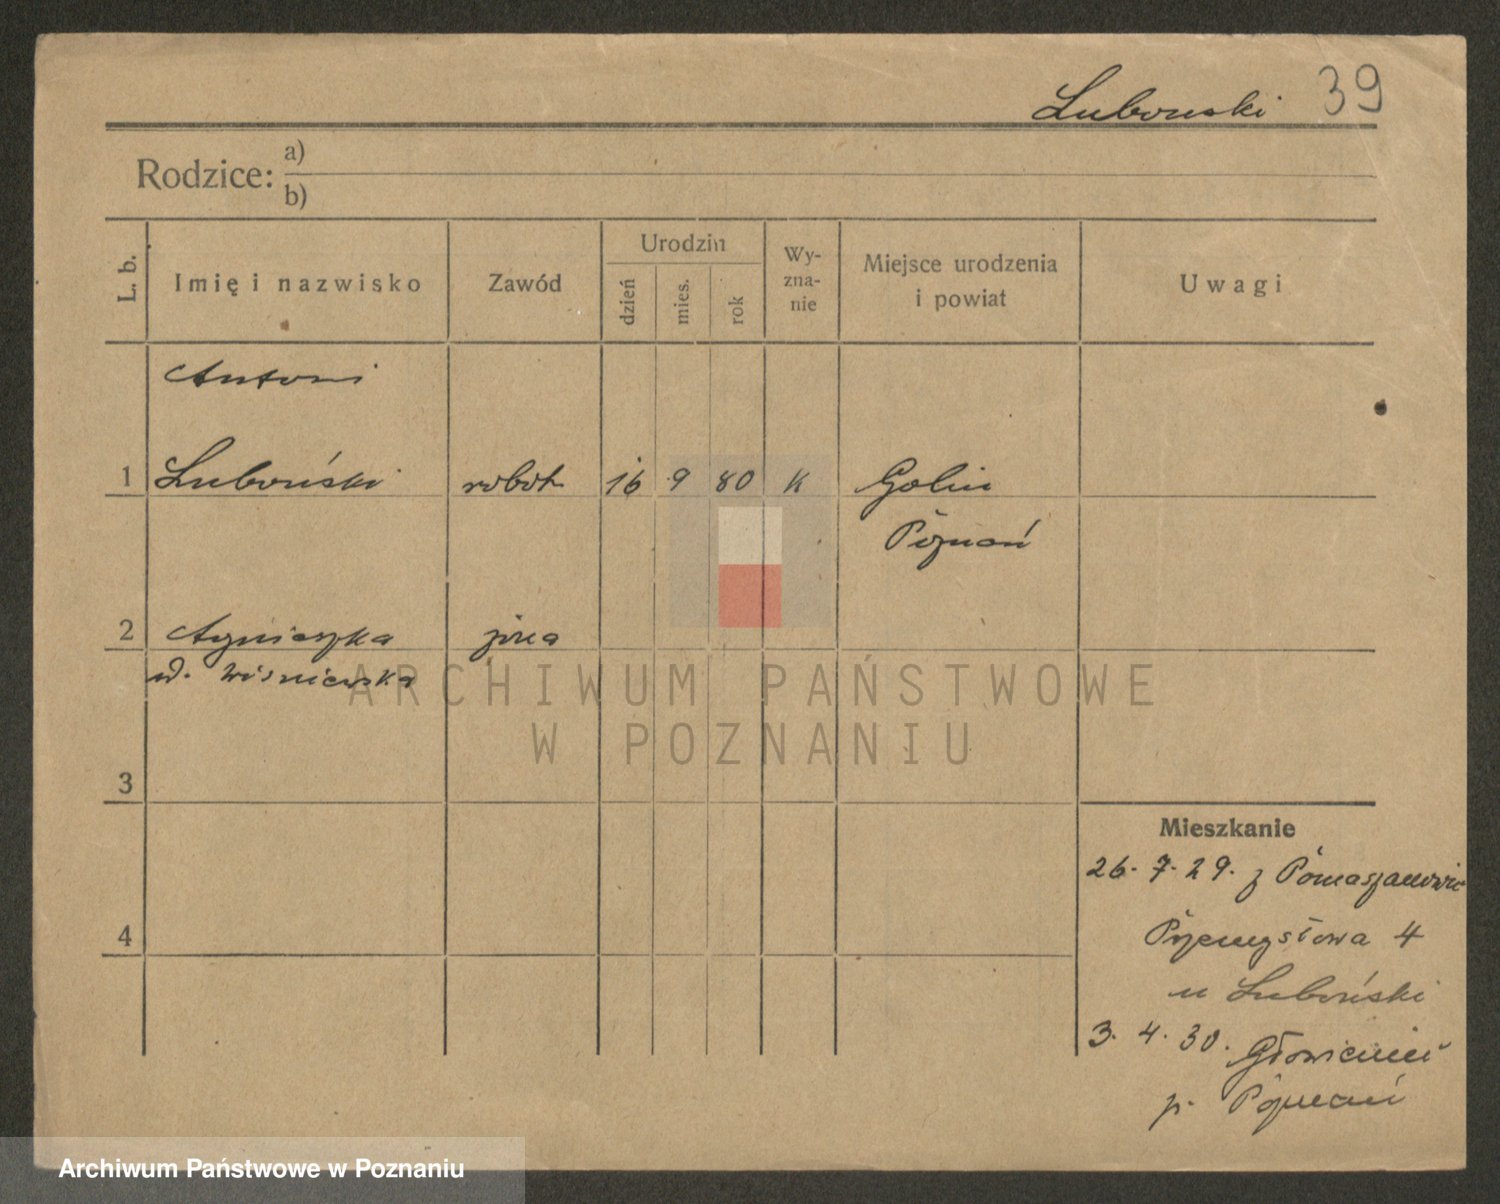 Luboński 39
Rodzice: a)
b)
L. b.
Imię i nazwisko
Zawód
Urodzin
dzień
mies.
rok
Wy-
zna-
nie
Miejsce urodzenia
i powiat
Uwagi
Antoni
1 Luboński robot. 16 9 80 K Golin
Poznań
2 Agnieszka żona
w. Wiśniewska
ARCHIWUM PAŃSTWOWE
W POZNANIU
3
Mieszkanie
26. 7. 29. z
4
Przemysłowa 4
u Luboński
3. 4. 30.
p. Poznań
Archiwum Państwowe w Poznaniu